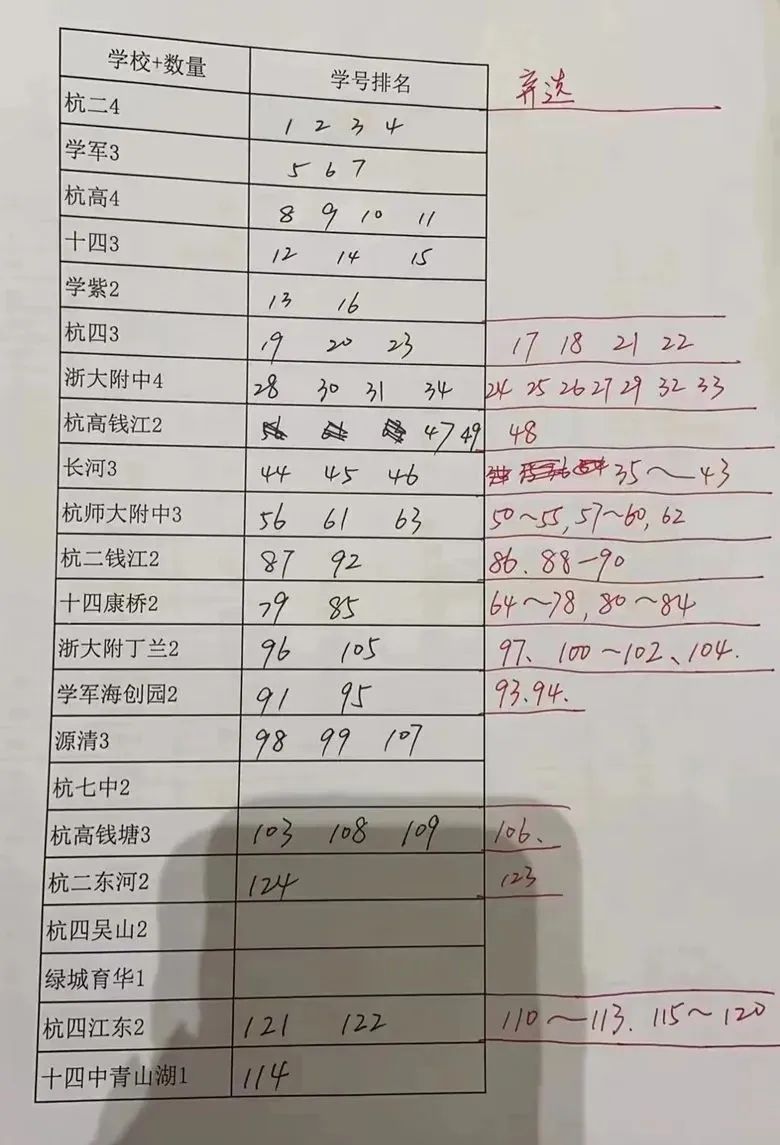 学校+数量 学号排名 弃选
杭二4 1 2 3 4
学军3 5 6 7
杭高4 8 9 10 11
十四3 12 14 15
学紫2 13 16
杭四3 19 20 23 17 18 21 22
浙大附中4 28 30 31 34 24 25 26 27 29 32 33
杭高钱江2 47 49 48
长河3 44 45 46 35~43
杭师大附中3 56 61 63 50~55,57~60,62
杭二钱江2 87 92 86、88-90
十四康桥2 79 85 64~78,80~84
浙大附丁兰2 96 105 97、100~102、104.
学军海创园2 91 95 93.94.
源清3 98 99 107
杭七中2
杭高钱塘3 103 108 109 106、
杭二东河2 124 123
杭四吴山2
绿城育华1
杭四江东2 121 122 110~113. 115~120
十四中青山湖1 114